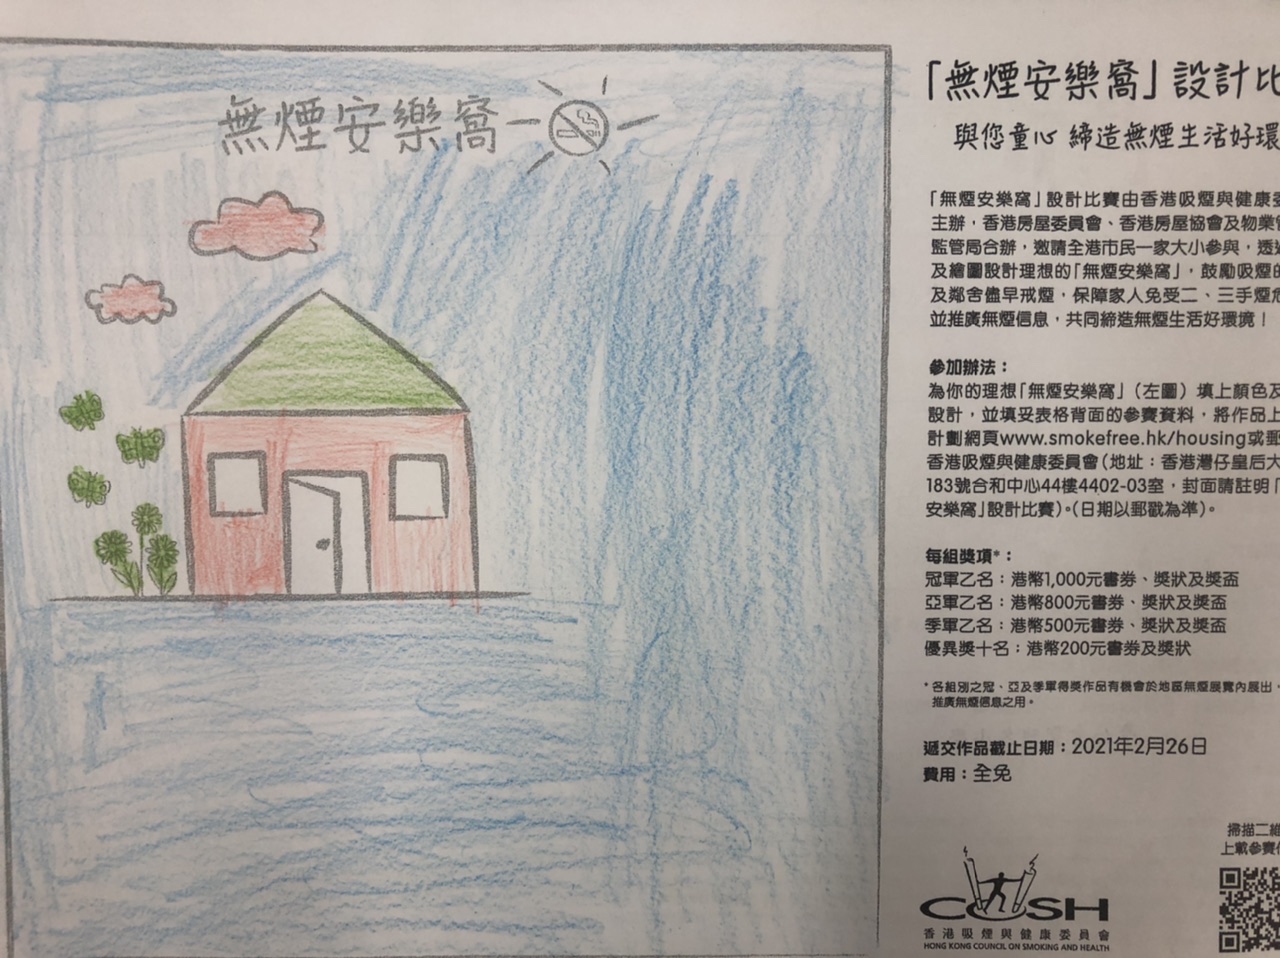 無煙安樂窩
「無煙安樂窩」設計比
與您童心 締造無煙生活好環
「無煙安樂窩」設計比賽由香港吸煙與健康委
主辦，香港房屋委員會、香港房屋協會及物業管
監管局合辦，邀請全港市民一家大小參與，透過
及繪圖設計理想的「無煙安樂窩」，鼓勵吸煙的
及鄰舍儘早戒煙，保障家人免受二、三手煙危
並推廣無煙信息，共同締造無煙生活好環境！
參加辦法：
為你的理想「無煙安樂窩」（左圖）填上顏色及
設計，並填妥表格背面的參賽資料，將作品上
計劃網頁www.smokefree.hk/housing或郵
香港吸煙與健康委員會（地址：香港灣仔皇后大
183號合和中心44樓4402-03室，封面請註明「
安樂窩」設計比賽）。（日期以郵戳為準）。
每組獎項*：
冠軍乙名：港幣1,000元書券、獎狀及獎盃
亞軍乙名：港幣800元書券、獎狀及獎盃
季軍乙名：港幣500元書券、獎狀及獎盃
優異獎十名：港幣200元書券及獎狀
*各組別之冠、亞及季軍得獎作品有機會於地區無煙展覽內展出，
推廣無煙信息之用。
遞交作品截止日期：2021年2月26日
費用：全免
掃描二維
上載參賽作
COSH
香港吸煙與健康委員會
HONG KONG COUNCIL ON SMOKING AND HEALTH